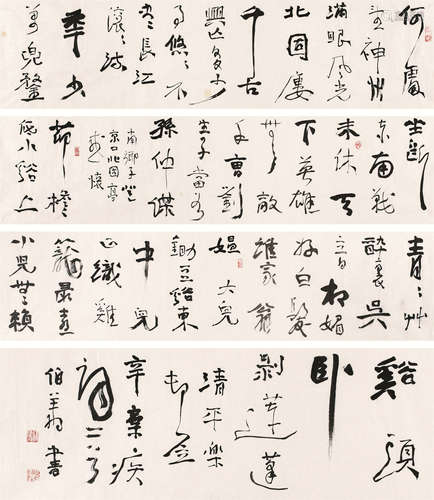 何處
望神州
滿眼風光
北固廔
千古
興亡多少
事悠〻不
盡長江
滚〻流
年少
萬兜鍪
坐斷
東南戰
未休天
下英雄
誰敵
手曹劉
生子當如
孫仲謀
南鄉子登
京口北固亭
有懷
茆檐
低小谿上
青〻艸
醉裏吴
音相媚
好白髮
誰家翁
媼大兒
鋤豆谿東
中兒
正織雞
籠最喜
小兒無賴
谿頭
卧
剥蓮蓬
清平樂
村居
辛棄疾
詞二首
伯翔書